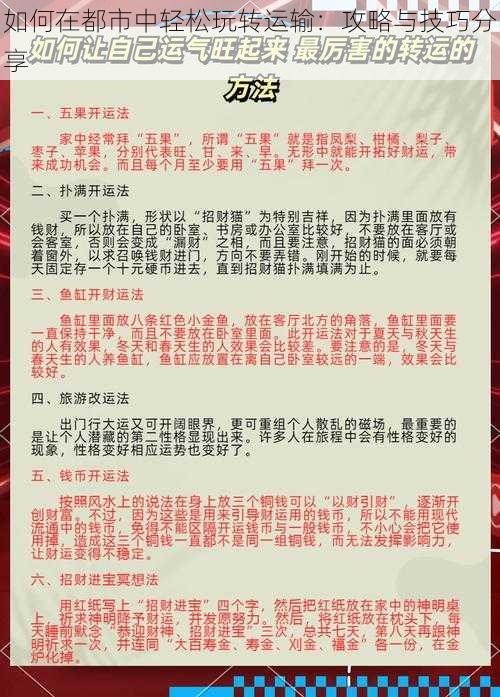 如何在都市中轻松玩转运输：攻略与技巧分
享
如何让自己运气旺起来 最厉害的转运的
方法
一、五果开运法
家中经常拜“五果”，所谓“五果”就是指凤梨、柑橘、梨子、
枣子、苹果，分别代表旺、甘、来、早。无形中就能开拓好财运，带
来成功机会。而且每个月至少要用“五果”拜一次。
二、扑满开运法
买一个扑满，形状以“招财猫”为特别吉祥，因为扑满里面放有
钱财，所以放在自己的卧室、书房或办公室比较好，不要放在客厅或
会客室，否则会变成“漏财”之相，而且要注意，招财猫的面必须朝
着窗外，以求召唤钱财进门，方向不要弄错。刚开始的时候，就要每
天固定存一个十元硬币进去，直到招财猫扑满填满为止。
三、鱼缸开财运法
鱼缸里面放八条红色小金鱼，放在客厅北方的角落，鱼缸里面要
一直保持干净，而且不要放在卧室里面。此开运法对于夏天与秋天生
的人有效果，冬天和春天生的人效果会比较差。要注意的是，冬天与
春天生的人养鱼缸，鱼缸应放置在离自己卧室较远的一端，效果会比
较好。
四、旅游改运法
出门行大运又可开阔眼界，更可重组个人散乱的磁场，最重要的
是让个人潜藏的第二性格显现出来。许多人在旅程中会有性格变好的
现象，性格变好相应运势也变好了。
五、钱币开运法
按照风水上的说法在身上放三个铜钱可以“以财引财”，逐渐开
创财富。不过，因为这些是用来引导财运用的钱币，所以不能用现代
流通中的钱币，免得不能区隔开运钱币与一般钱币，不小心会把它使
用掉，造成这三个铜钱一直都不是同一组铜钱，而无法发挥影响力，
让财运变得不稳定。
六、招财进宝冥想法
用红纸写上“招财进宝”四个字，然后把红纸放在家中的神明桌
上，祈求神明降予财运，并发愿努力。然后，将红纸放在枕头下，每
天睡前默念“恭迎财神、招财进宝”三次，总共七天，第八天再跟神
明祈求一次，并连同“大百寿金、寿金、刈金、福金”各一份，在金
炉化掉。